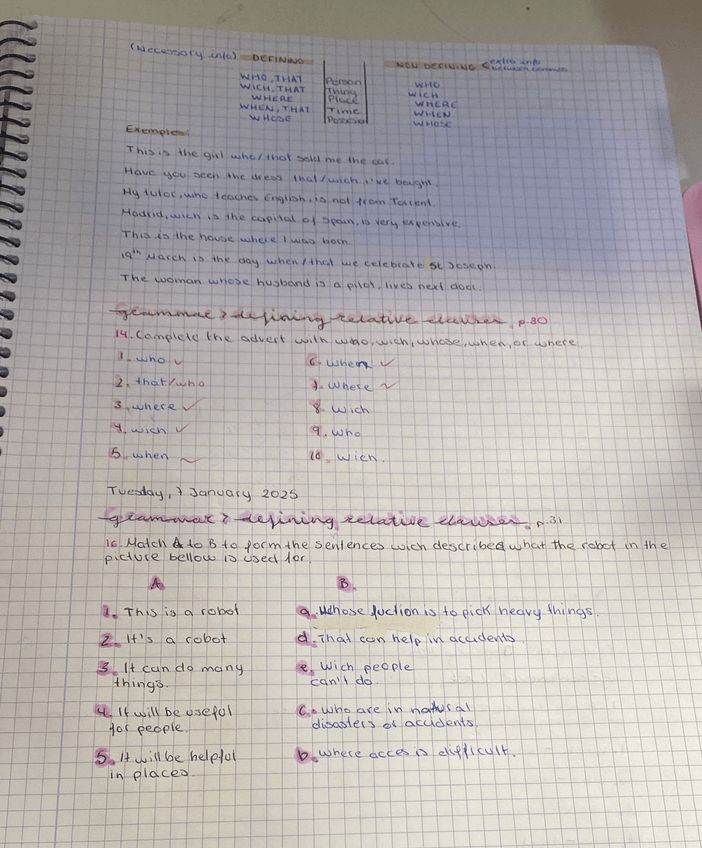 (Necessary info) DEFINING NON DEFINING < extra info between commas
WHO, THAT Person WHO
WICH, THAT Thing WICH
WHERE Place WHERE
WHEN, THAT Time WHEN
WHOSE WHOSE
Exemples
This is the girl who/that sold me the car.
Have you seen the dress that/wich i've bought.
My tutor, who teaches English, is not from Torrent.
Madrid, wich is the capital of Spain, is very expensive
This is the house where I was born
19th March is the day when/that we celebrate St Joseph
The woman whose husband is a pilot, lives next door
grammar > defining relative clauses p.30
14. Complete the advert with who, wich, whose, when, or where
1. who ✓ 6. when ✓
2. that/who 7. where
3. where ✓ 8. wich
4. wich ✓ 9. who
5. when 10. wich.
Tuesday, 7 January 2025
grammar > defining relative clauses p.31
16. Match A to B to form the sentences wich described what the robot in the
picture bellow is used for.
A B.
1. This is a robot a. Whose fuction is to pick heavy things.
2. It's a robot d. That can help in accidents
3. It can do many e. Wich people
things. can't do.
4. It will be useful c. who are in natural
for people. disasters or accidents.
5. It will be helpful b. where acces is difficult.
in places